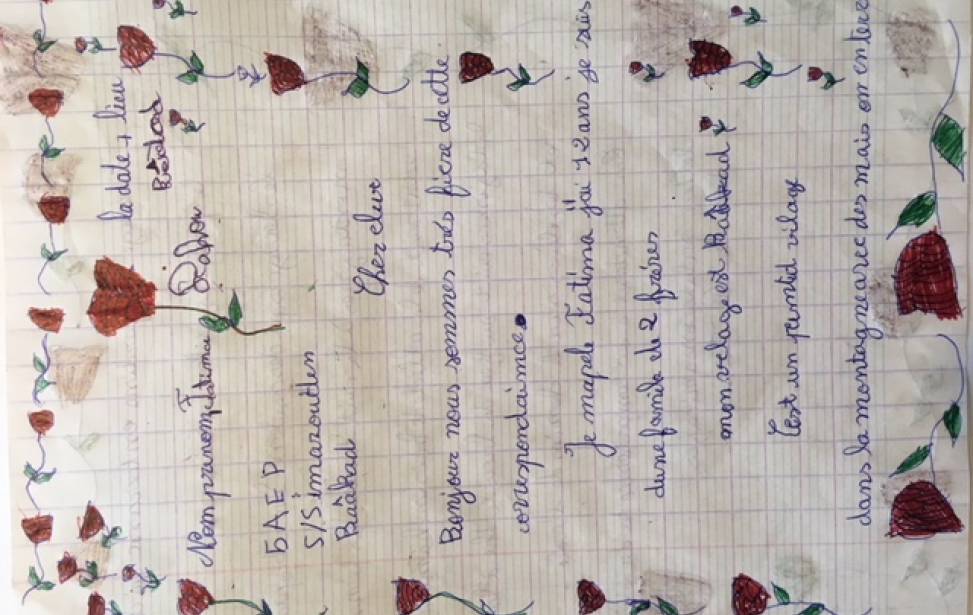 la date + lieu
Nom prénom Fatima Rahou
5AEP
S/S imazoutten
Baâkad
Cher cleur
Bonjour nous sommes très fière de cette
correspondaimce.
Je m'apele Fatima j'ai 12 ans je suis
dune famile de 2 frères
mon velage est Baâkad
C'est un pemtid vilage
dans la montagne avec des mais on enleve